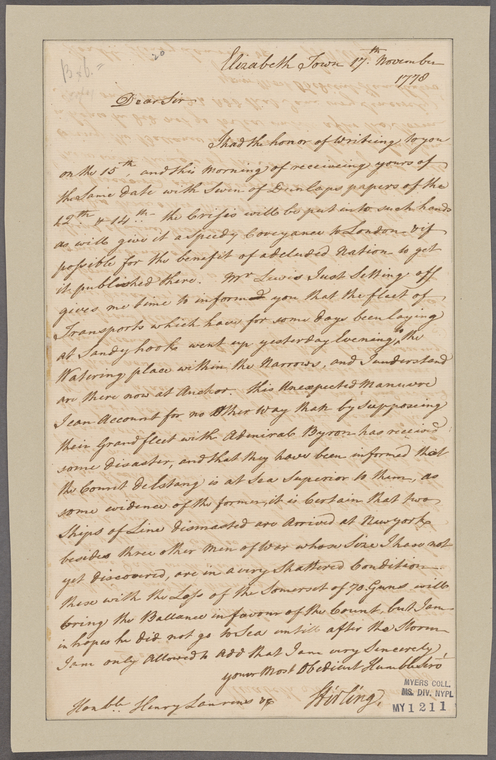 20
Elizabeth Town 17.th November
1778
Dear Sir
I had the honor of Writing to you
on the 15th, and this Morning of receiveing yours of
the same date with Seven of Dunlaps papers of the
12th & 14th - the Crisis will be put into such hands
as will give it a speedy Conveyance to London & if
possible for the benefit of a deluded Nation to get
it published there. Mr Lewis Just Setting off
gives me time to informed you that the fleet of
Transports which have for some days been laying
at Sandy hook went up yesterday Evening to the
Watering place within the Narrows, and I understand
are there now at Anchor. this Unexpected Maneuvre
I can Account for no Other Way than by Supposing
their Grand fleet with Admiral Byron has received
some disaster, and that they have been informed that
the Count de Estang is at Sea Superior to them, as
some evidence of the former, it is Certain that two
Ships of Line dismasted are Arrived at New york
besides three other Men of War whose Size I have not
yet discovered, are in a very Shattered Condition
these with the Loss of the Somerset of 70 Guns will
bring the Ballance in favour of the Count, but I am
in hopes he did not go to Sea untill after the Storm
I am only Allowed to Add that I am very Sincerely
your Most Obedient Humble Srv.t
Stirling,
Honble. Henry Laurens
MYERS COLL.
MS. DIV. NYPL
MY 1211